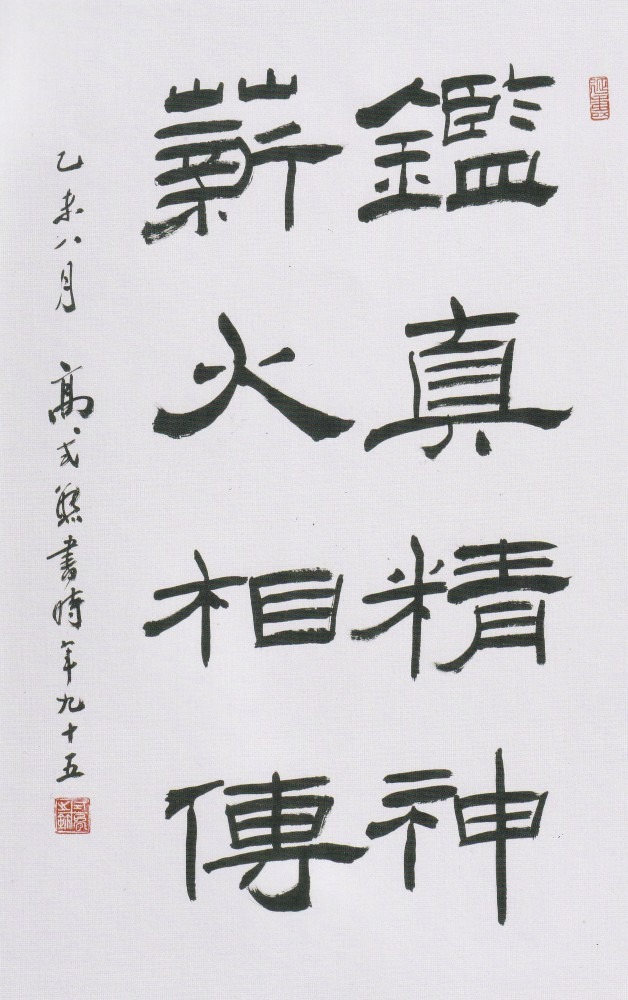 鑑真精神
薪火相傳
乙未八月 高式熊書時年九十五